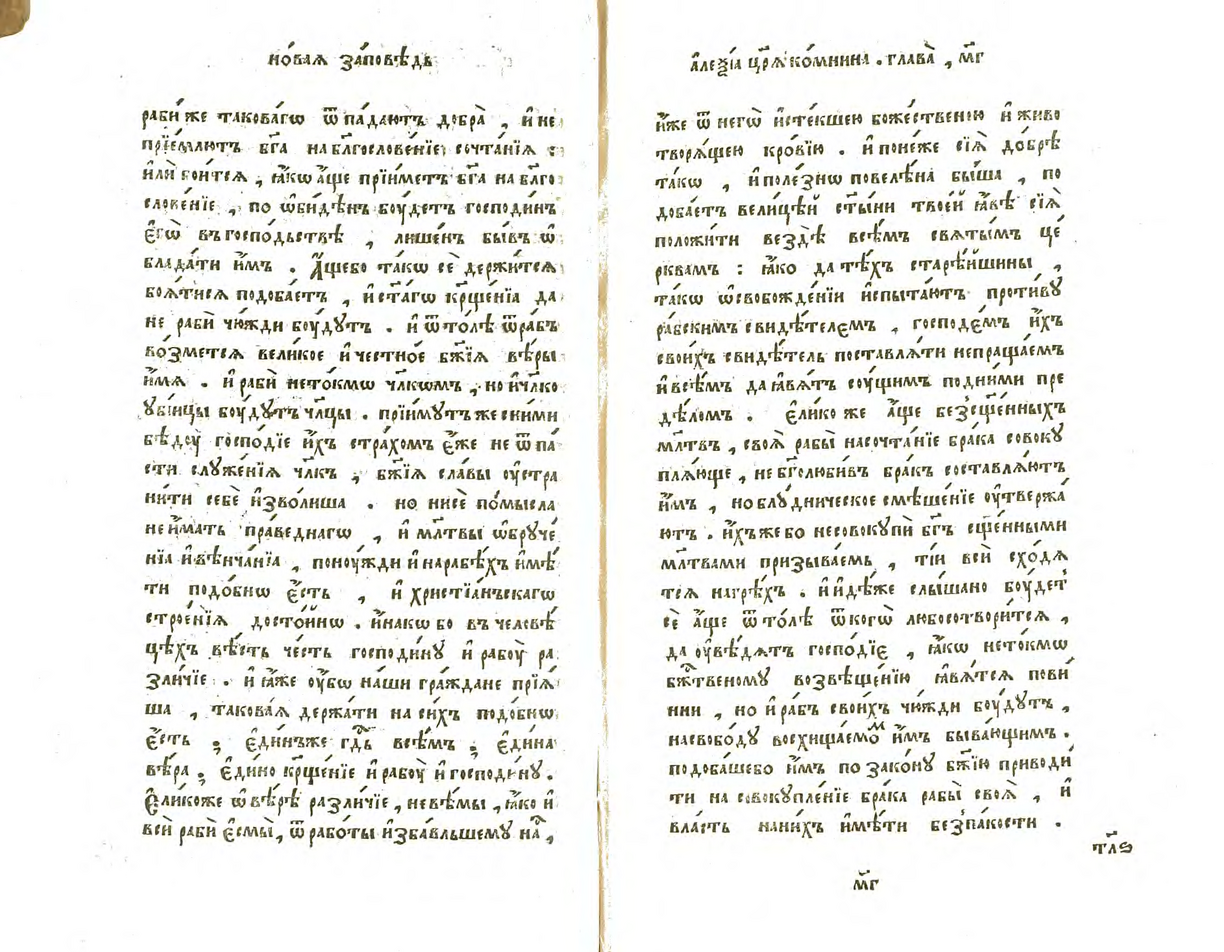 но́ваѧ за́повѣдь
раби́ же такова́гѡ ѿпа́даютъ добра̀ , и҆ не
прїе́млютъ бг҃а на блг҃ослове́нїе сочта́нїѧ :
и҆лѝ боѝтсѧ , ꙗ҆́кѡ а҆́ще прїи́метъ бг҃а на блг҃о
слове́нїе , по ѡ҆би́дѣнъ боу́детъ господи́нъ
є҆гѡ̀ въ госпо́дьствѣ , лише́нъ бы́въ ѡ҆
блада́ти и҆́мъ . а҆́щебо та́кѡ сѐ держи́тсѧ
боѧ́тисѧ подоба́етъ , и҆ ст҃а́гѡ кр҃ще́нїа да
не раби̑ чю́жди боу́дутъ . и҆ ѿто́лѣ ѿра́бъ
во́зметсѧ вели́кое и҆ че́стно́е бж҃їѧ вѣ́ры
и҆́мѧ . и҆ раби̑ нето́кмѡ чл҃кѡмъ , но и҆ чл҃ко
ꙋбі́ицы боу́дутъ чл҃цы . прїи́мутъ же сни́ми
бѣдоу̀ госпо́дїе и҆́хъ стра́хомъ є҆́же не ѿпа́
сти слꙋже́нїѧ чл҃къ , бж҃їѧ сла́вы оу҆стра
ни́ти себѐ и҆зво́лиша . но нисѐ по́мысла
не и҆́мать пра́веднагѡ , и҆ мл҃твы ѡ҆брꙋче́
нїа и҆ вѣнча́нїа , поноу́жди и҆ нарабѣ́хъ и҆мѣ́
ти подо́бнѡ є҆́сть , и҆ христїа́нъскагѡ
строе́нїѧ досто́йнѡ . и҆́накѡ бо въ человѣ́
цѣхъ вѣ́сть че́сть господи́нꙋ и҆ рабоу̀ ра
зли́чїе . и҆ ꙗ҆́же оу҆́бѡ на́ши гра́ждане прїѧ́
ша , такова́ѧ держа́ти на си́хъ подо́бнѡ
є҆́сть ; є҆ди́нъже гд҇ь всѣ́мъ ; є҆ди́на
вѣ́ра ; є҆ди́но кр҃ще́нїе и҆ рабоу̀ и҆ господи́нꙋ .
є҆ли́коже ѡ҆ вѣ́рѣ разли́чїе , невѣ́мы , ꙗ҆́ко и҆
всѝ рабѝ є҆смы̀ , ѿ рабо́ты и҆зба́вльшемꙋ на́с ,
а҆ле́ѯїа цр҃ѧ̀ ко́мнина . глава̀ , м҃г
и҆́же ѿ негѡ̀ и҆сте́кшею боже́ственою и҆ живо
творѧ́щею кро́вїю . и҆ поне́же сїѧ̀ до́брѣ
та́кѡ , и҆ поле́знѡ повелѣ́на бы́ша , по
доба́етъ вели́цѣй ст҃ы́ни твое́й ꙗ҆́вѣ сїѧ̀
положи́ти вездѣ̀ всѣ́мъ свѧты́мъ це́
рквамъ : ꙗ҆́ко да тѣ́хъ старѣ́йшины ,
та́кѡ ѡ҆свобожде́нїи и҆спыта́ютъ проти́вꙋ
ра́бскимъ свидѣ́телемъ , господе́мъ и҆́хъ
свои́хъ свидѣ́тель поставлѧ́ти непраща́емъ
и҆ всѣ́мъ да ꙗ҆вѧ́тъ соу́щимъ подни́ми пре
дѣ́ломъ . є҆ли́ко же а҆́ще безсщ҃е́нныхъ
мл҃твъ , своѧ̀ рабы̀ насочта́нїе бра́ка совокꙋ
плѧ́юще , не бг҃олюби́въ бра́къ составлѧ́ютъ
и҆́мъ , но блꙋ́дническое смѣше́нїе оу҆твержа́
ютъ . и҆́хъже бо несовокꙋпѝ бг҃ъ сщ҃е́нными
мл҃твами призыва́емь , ті́и всѝ схо́дѧ
тсѧ нагрѣ́хъ . и҆ и҆дѣ́же слы́шано боу́детъ
сѐ а҆́ще ѿто́лѣ ѿкогѡ̀ любосотвори́тсѧ ,
да оу҆вѣ́дѧтъ госпо́дїе , ꙗ҆́кѡ нето́кмѡ
бж҇твеномꙋ возвѣще́нїю ꙗ҆вѧ́тсѧ пови́
нни , но и҆ ра́бъ свои́хъ чю́жди боу́дутъ ,
насвобо́дꙋ восхища́емом и҆́мъ быва́ющимъ .
подоба́шебо и҆́мъ по зако́нꙋ бж҃їю приводи́
ти на совокꙋпле́нїе бра́ка рабы̀ своѧ̀ , и҆
вла́сть нани́хъ и҆мѣ́ти безпа́кости .
тл҃ѕ
м҃г